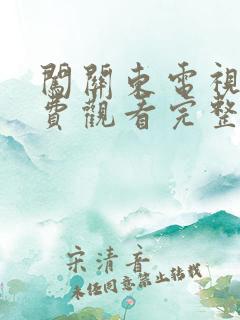 闖關東電視
費觀看完整
宋清音
未经同意禁止转载